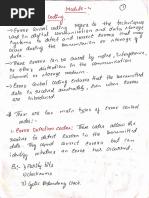 Module-4
①
Error Control Coding
→ Error control coding refers to the techniques
used in digital communication and data storage
systems to detect and correct errors that may
occur during the transmission or storage of
data.
→ Errors can be caused by noise, interference,
or other distortion in the communication
channel or storage medium.
→ Error control coding ensures that the transmitted
data is received accurately, even when errors
occur.
⇒ There are two main types of error control
codes:-
1. Error Detection Codes: These codes allow the
receiver to detect errors in the transmitted
data. They cannot correct errors but can
identify whether an error has occurred.
Eg:- 1) Parity Bits
2) Checksums
3) Cyclic Redundancy Check.